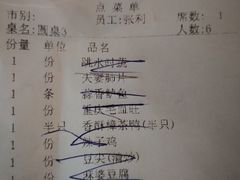 点菜单
市别: 员工:张利 席数: 1
桌名:圆桌3 人数:6
份量 单位 品名
1 份 跳水时蔬
1 份 夫妻肺片
1 条 蒜香鲈鱼
1 份 重庆毛血旺
1 半只 香酥樟茶鸭(半只)
1 份 辣子鸡
1 份 豆尖(清炒)
1 份 麻婆豆腐